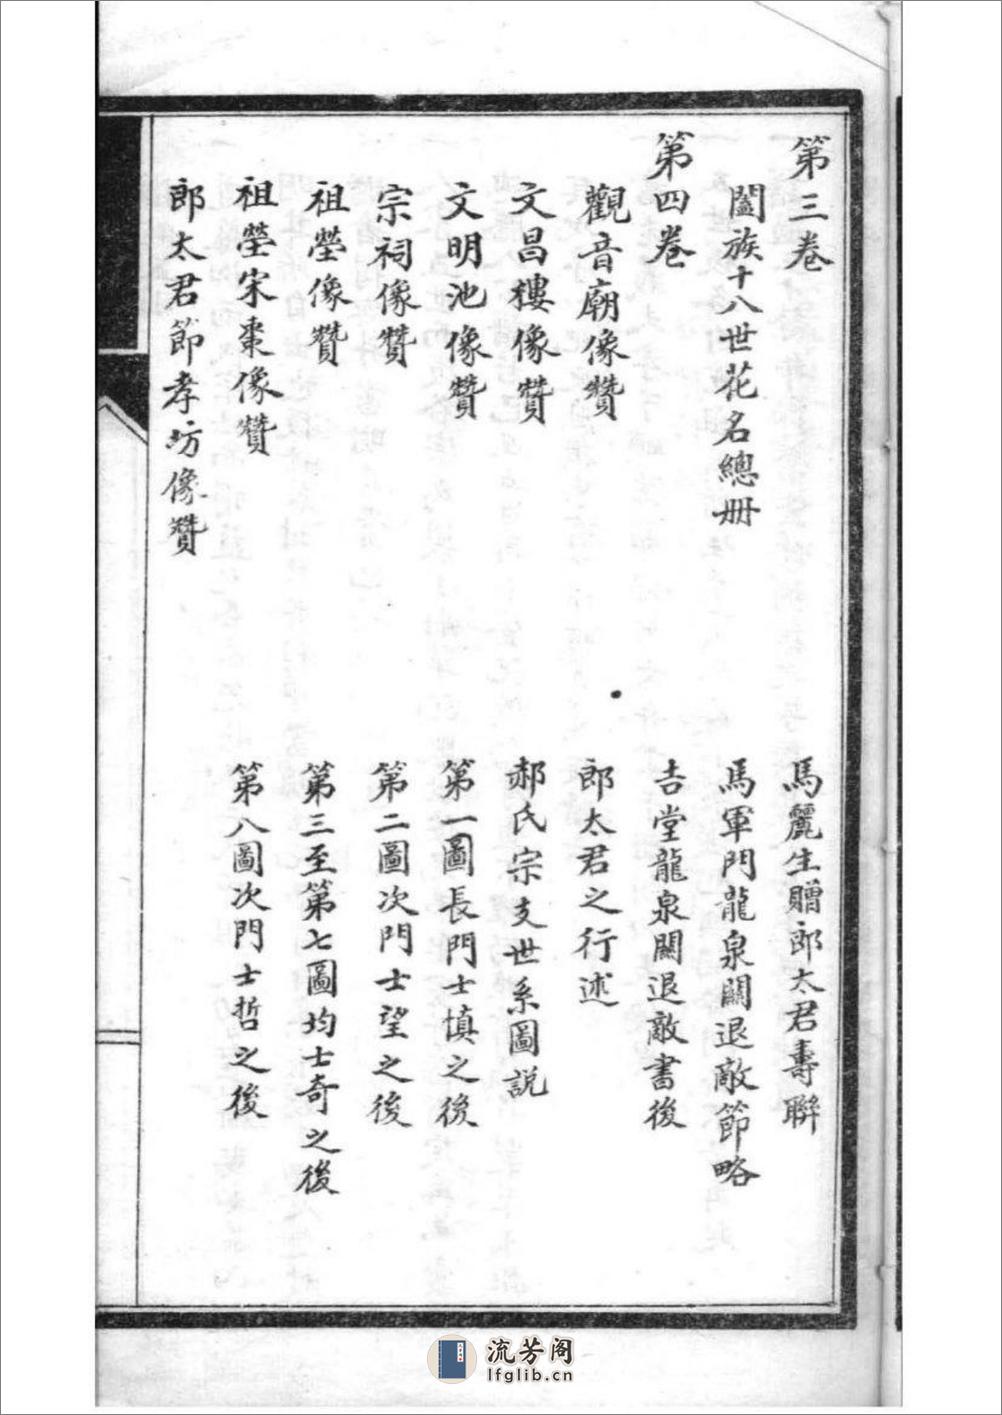 第三卷
闔族十八世花名總册
第四卷
觀音廟像贊
文昌樓像贊
文明池像贊
宗祠像贊
祖塋像贊
祖塋宋棗像贊
郎太君節孝坊像贊
馬麗生贈郎太君壽聯
馬軍門龍泉關退敵節略
吉堂龍泉關退敵書後
郎太君之行述
郝氏宗支世系圖説
第一圖長門士慎之後
第二圖次門士望之後
第三至第七圖均士奇之後
第八圖次門士哲之後
流芳阁
lfglib.cn